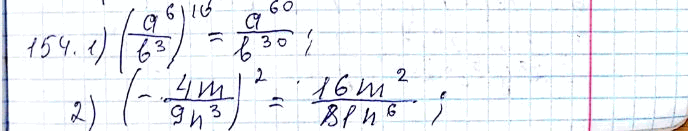 154. 1) (a^6/b^3)^10 = a^60/b^30 ;
2) (- 4m/9n^3)^2 = 16m^2/81n^6 ;